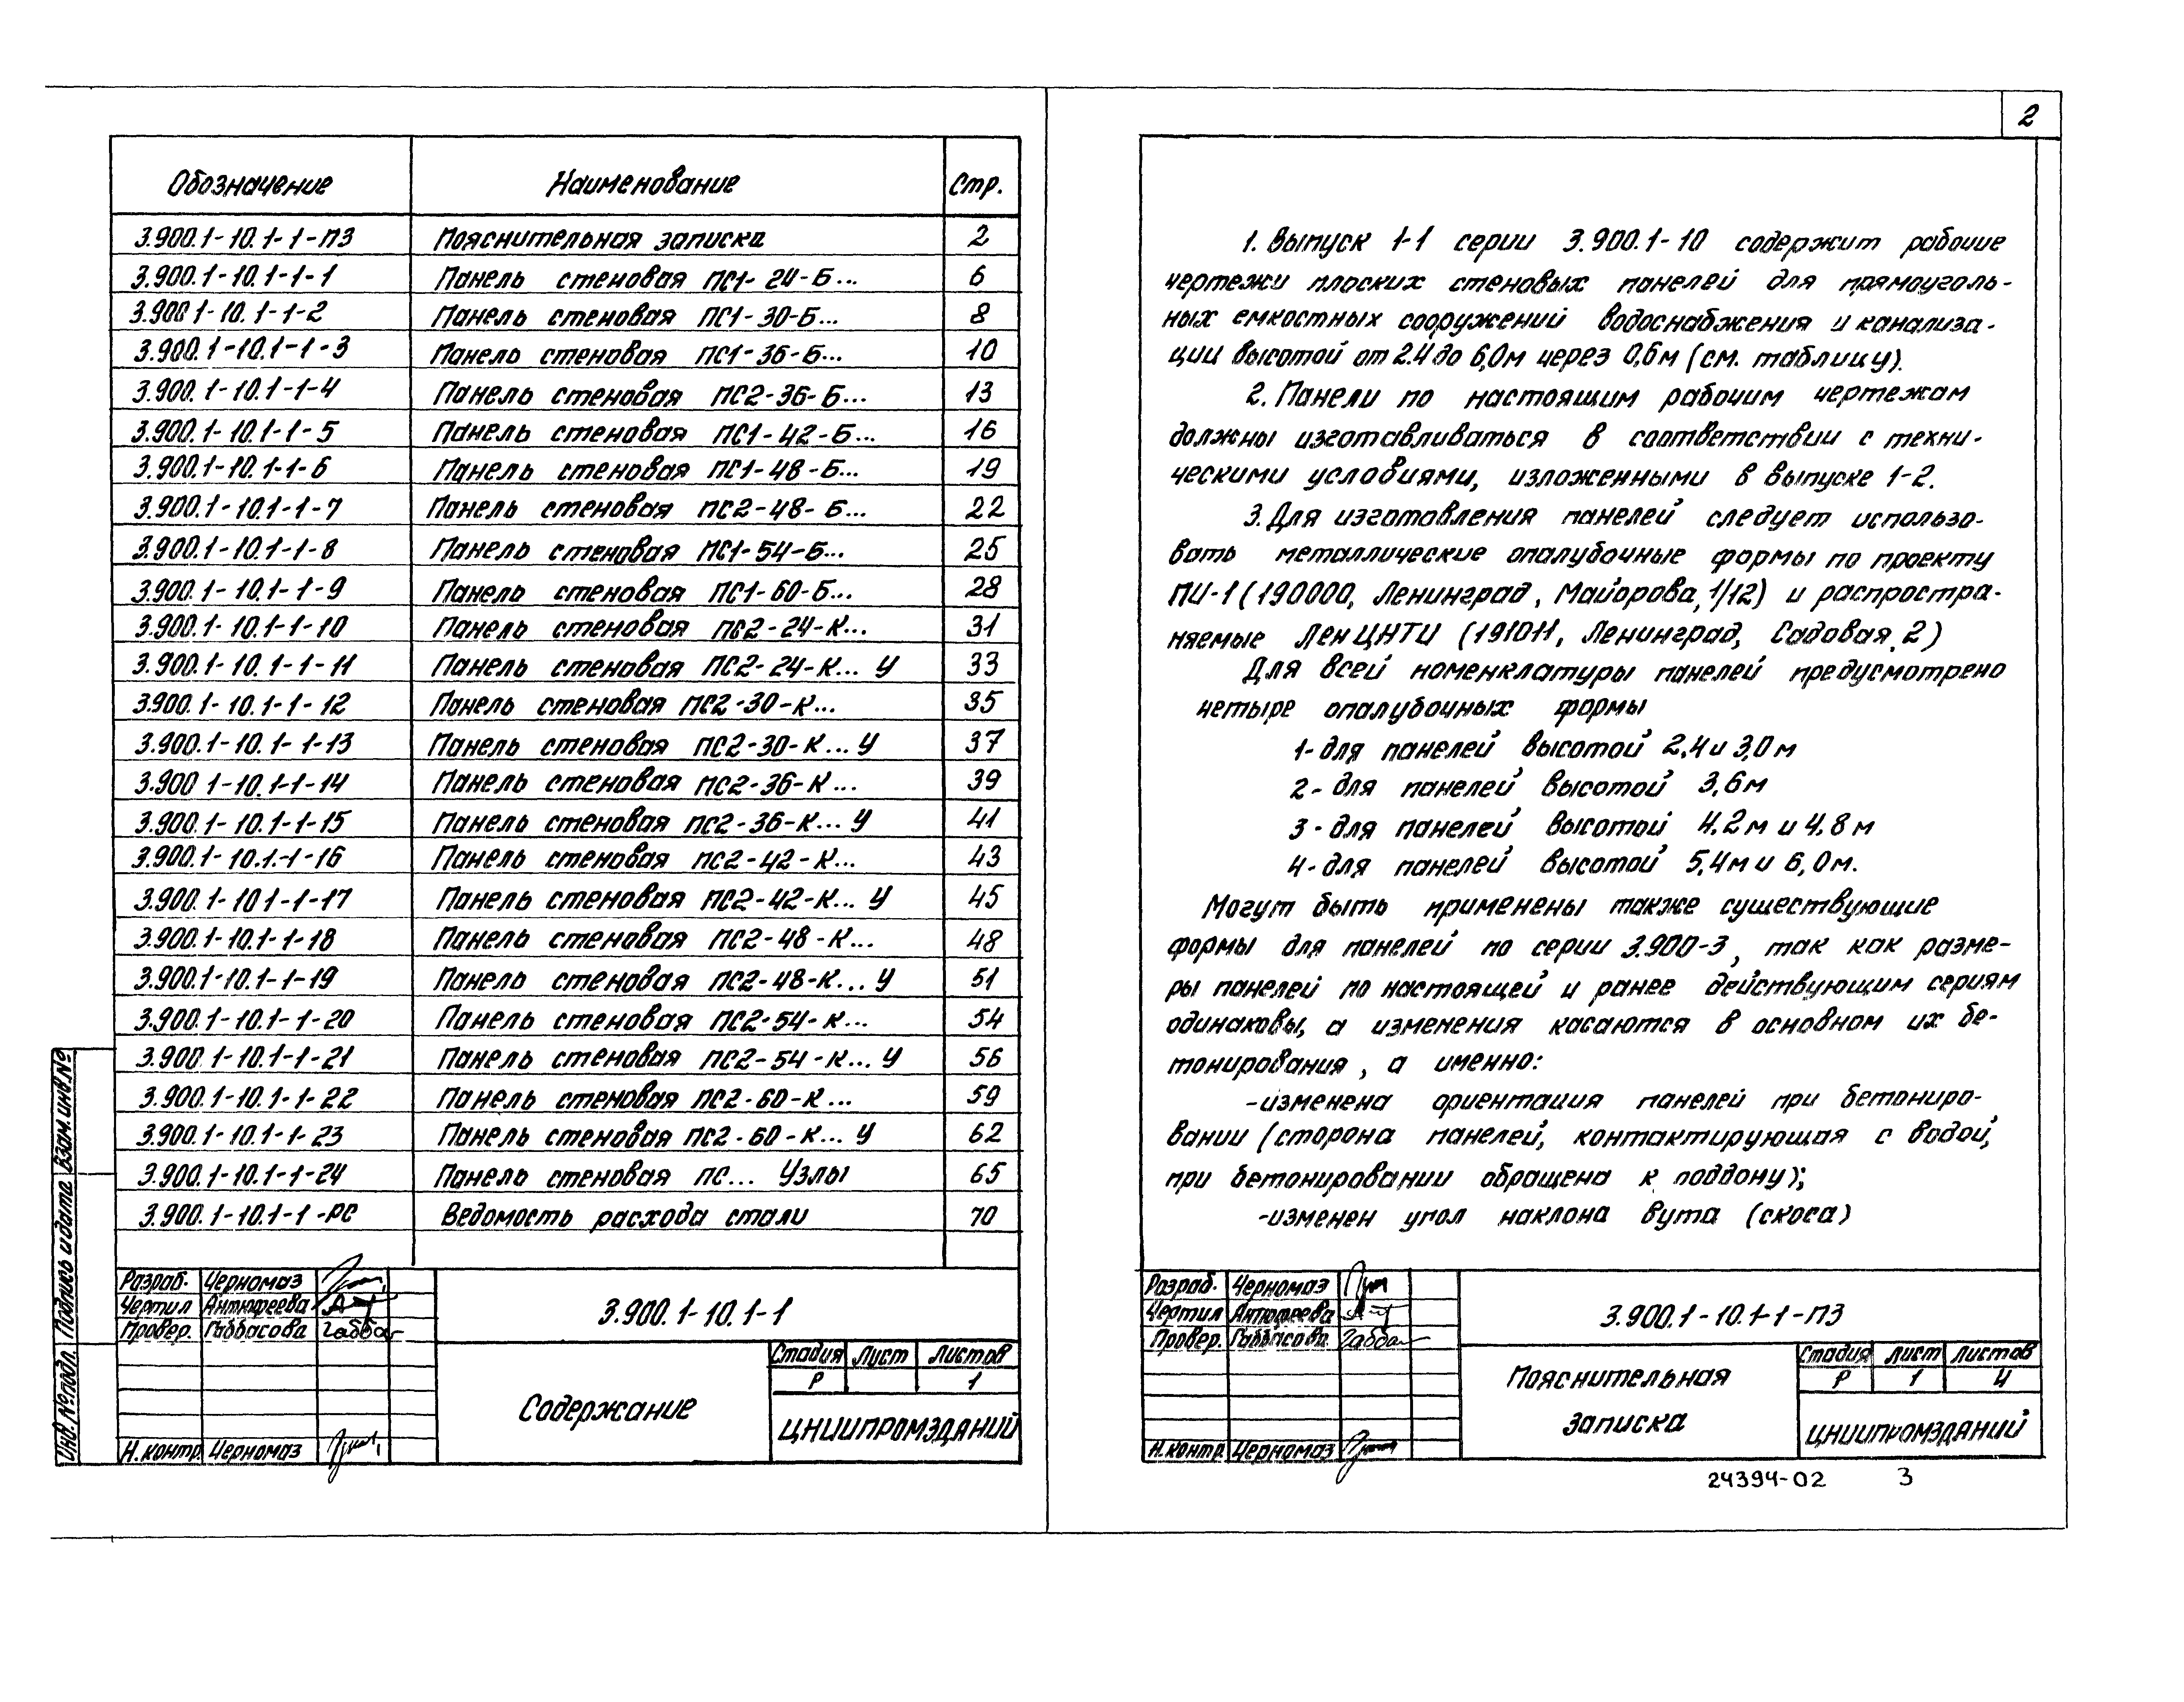 Обозначение Наименование Стр.
3.900.1-10.1-1-ПЗ Пояснительная записка 2
3.900.1-10.1-1-1 Панель стеновая ПС1-24-Б... 6
3.900 1-10.1-1-2 Панель стеновая ПС1-30-Б... 8
3.900.1-10.1-1-3 Панель стеновая ПС1-36-Б... 10
3.900.1-10.1-1-4 Панель стеновая ПС2-36-Б... 13
3.900.1-10.1-1-5 Панель стеновая ПС1-42-Б... 16
3.900.1-10.1-1-6 Панель стеновая ПС1-48-Б... 19
3.900.1-10.1-1-7 Панель стеновая ПС2-48-Б... 22
3.900.1-10.1-1-8 Панель стеновая ПС1-54-Б... 25
3.900.1-10.1-1-9 Панель стеновая ПС1-60-Б... 28
3.900.1-10.1-1-10 Панель стеновая ПС2-24-К... 31
3.900.1-10.1-1-11 Панель стеновая ПС2-24-К... У 33
3.900.1-10.1-1-12 Панель стеновая ПС2-30-К... 35
3.900.1-10.1-1-13 Панель стеновая ПС2-30-К... У 37
3.900 1-10.1-1-14 Панель стеновая ПС2-36-К... 39
3.900.1-10.1-1-15 Панель стеновая ПС2-36-К... У 41
3.900.1-10.1.-1-16 Панель стеновая ПС2-42-К... 43
3.900.1-10 1-1-17 Панель стеновая ПС2-42-К... У 45
3.900.1-10.1-1-18 Панель стеновая ПС2-48-К... 48
3.900.1-10.1-1-19 Панель стеновая ПС2-48-К... У 51
3.900.1-10.1-1-20 Панель стеновая ПС2-54-К... 54
3.900.1-10.1-1-21 Панель стеновая ПС2-54-К... У 56
3.900.1-10.1-1-22 Панель стеновая ПС2-60-К... 59
3.900.1-10.1-1-23 Панель стеновая ПС2-60-К... У 62
3.900.1-10.1-1-24 Панель стеновая ПС... Узлы 65
3.900.1-10.1-1-РС Ведомость расхода стали 70
Разраб. Черномаз
Чертил Антюфеева
Провер. Габбасова Габбас
Н.контр. Черномаз
3.900.1-10.1-1
Содержание
Стадия Лист Листов
Р 1
ЦНИИПРОМЗДАНИЙ
Инв.№подл. Подпись и дата Взам.инв.№
2
1. Выпуск 1-1 серии 3.900.1-10 содержит рабочие
чертежи плоских стеновых панелей для прямоуголь-
ных емкостных сооружений водоснабжения и канализа-
ции высотой от 2.4 до 6,0м через 0,6м (см. таблицу).
2. Панели по настоящим рабочим чертежам
должны изготавливаться в соответствии с техни-
ческими условиями, изложенными в выпуске 1-2.
3. Для изготовления панелей следует использо-
вать металлические опалубочные формы по проекту
ПИ-1 (190000, Ленинград, Майорова, 1/12) и распростра-
няемые ЛенЦНТИ (191011, Ленинград, Садовая, 2)
Для всей номенклатуры панелей предусмотрено
четыре опалубочных формы
1- для панелей высотой 2,4 и 3,0м
2- для панелей высотой 3,6м
3- для панелей высотой 4.2м и 4.8м
4- для панелей высотой 5,4м и 6,0м.
Могут быть применены также существующие
формы для панелей по серии 3.900-3, так как разме-
ры панелей по настоящей и ранее действующим сериям
одинаковы, а изменения касаются в основном их бе-
тонирования, а именно:
-изменена ориентация панелей при бетониро-
вании (сторона панелей, контактирующая с водой,
при бетонировании обращена к поддону);
-изменен угол наклона вута (скоса)
Разраб. Черномаз
Чертил Антюфеева
Провер. Габбасова Габбас
Н.контр. Черномаз
3.900.1-10.1-1-ПЗ
Пояснительная
записка
Стадия Лист Листов
Р 1 4
ЦНИИПРОМЗДАНИЙ
24394-02 3